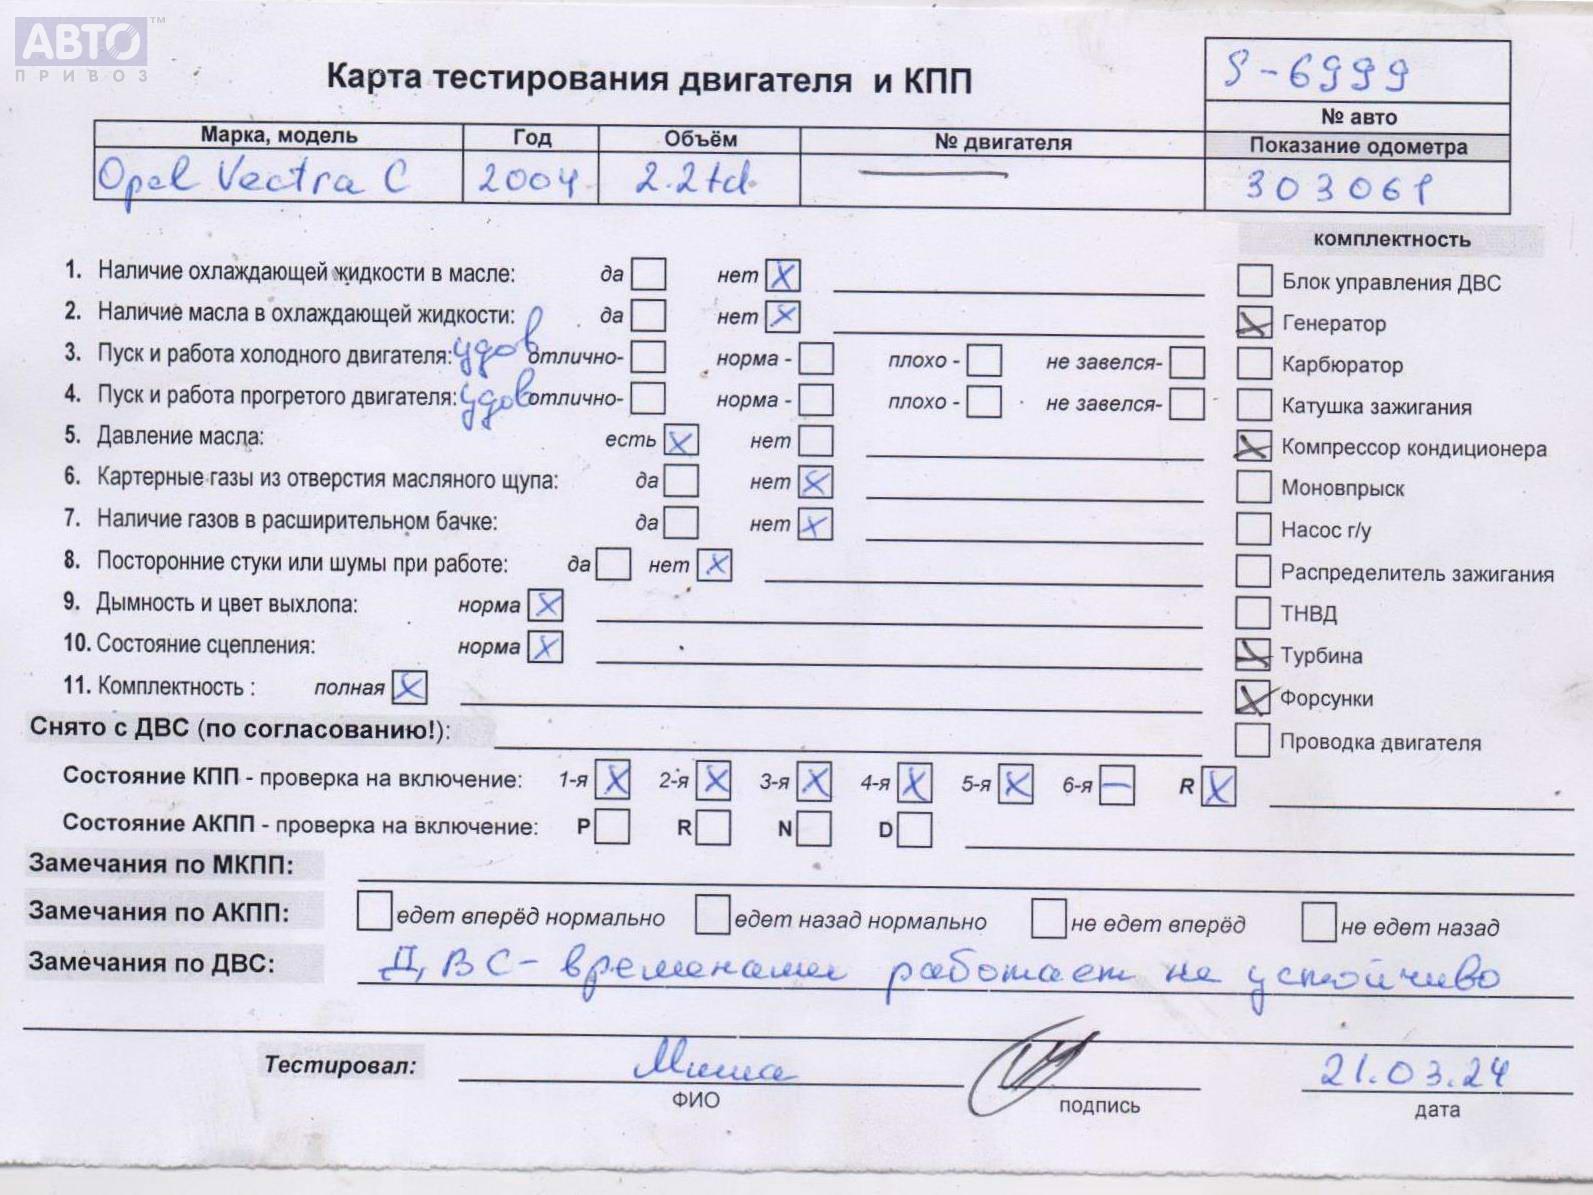 АВТО™
ПРИВОЗ
Карта тестирования двигателя и КПП
S-6999
№ авто
Марка, модель Год Объём № двигателя Показание одометра
Opel Vectra C 2004 2.2td — 303061
комплектность
1. Наличие охлаждающей жидкости в масле: да нет X
2. Наличие масла в охлаждающей жидкости: да нет X
3. Пуск и работа холодного двигателя: удов отлично- норма - плохо - не завелся-
4. Пуск и работа прогретого двигателя: удов отлично- норма - плохо - не завелся-
5. Давление масла: есть X нет
6. Картерные газы из отверстия масляного щупа: да нет X
7. Наличие газов в расширительном бачке: да нет X
8. Посторонние стуки или шумы при работе: да нет X
9. Дымность и цвет выхлопа: норма X
10. Состояние сцепления: норма X
11. Комплектность : полная X
Блок управления ДВС
X Генератор
Карбюратор
Катушка зажигания
X Компрессор кондиционера
Моновпрыск
Насос г/у
Распределитель зажигания
ТНВД
X Турбина
X Форсунки
Проводка двигателя
Снято с ДВС (по согласованию!):
Состояние КПП - проверка на включение: 1-я X 2-я X 3-я X 4-я X 5-я X 6-я — R X
Состояние АКПП - проверка на включение: P R N D
Замечания по МКПП:
Замечания по АКПП: едет вперёд нормально едет назад нормально не едет вперёд не едет назад
Замечания по ДВС: ДВС - временами работает не устойчиво
Тестировал: Миша 21.03.24
ФИО подпись дата